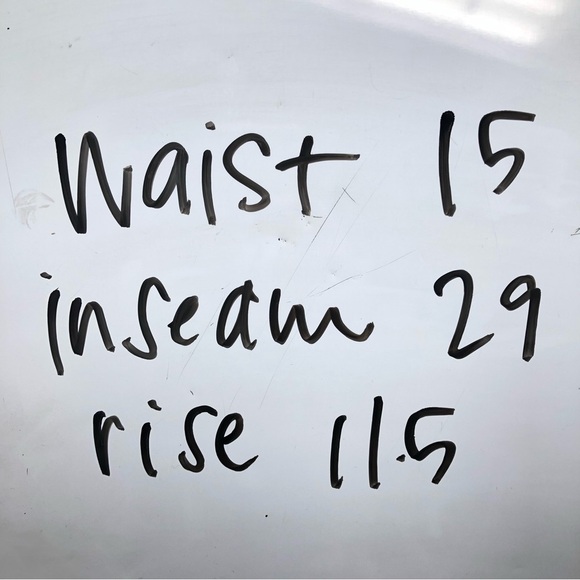 Waist 15
inseam 29
rise 11.5